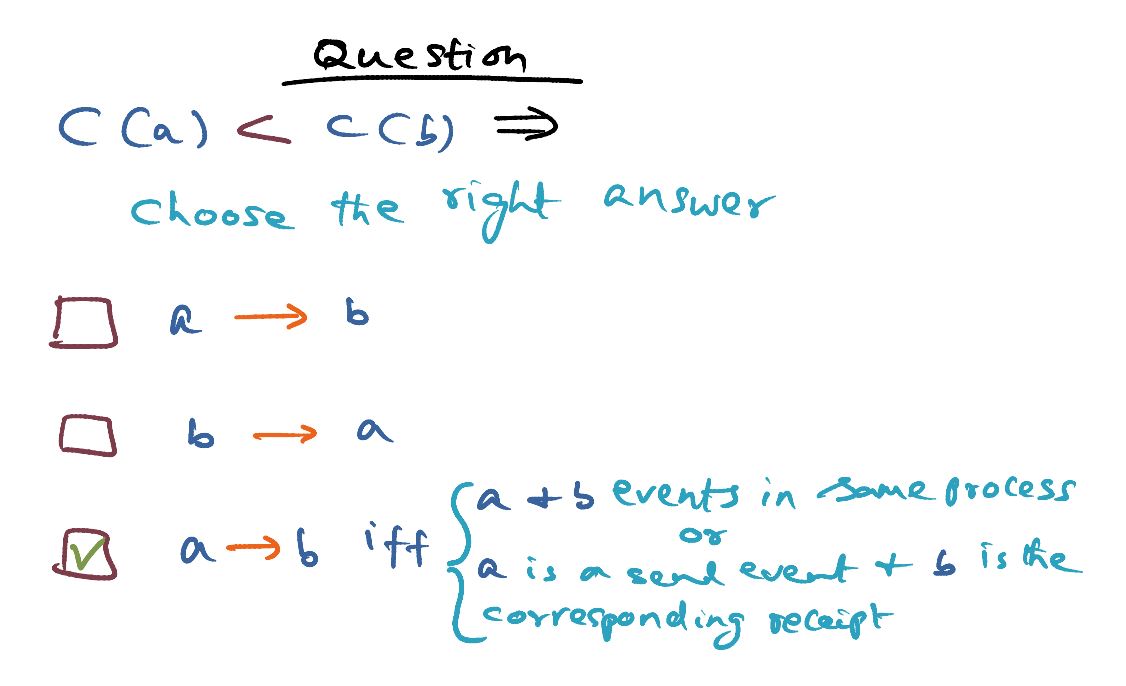 Question
C(a) < C(b) ⇒
choose the right answer
a → b
b → a
a → b iff { a + b events in same process
or
a is a send event + b is the
corresponding receipt